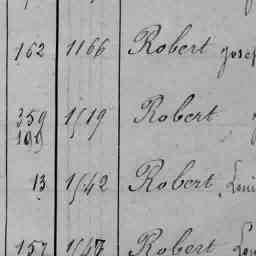 162 1166 Robert Josep
359 1519 Robert
199
13 1542 Robert, Loui
157 1547 Robert Lou